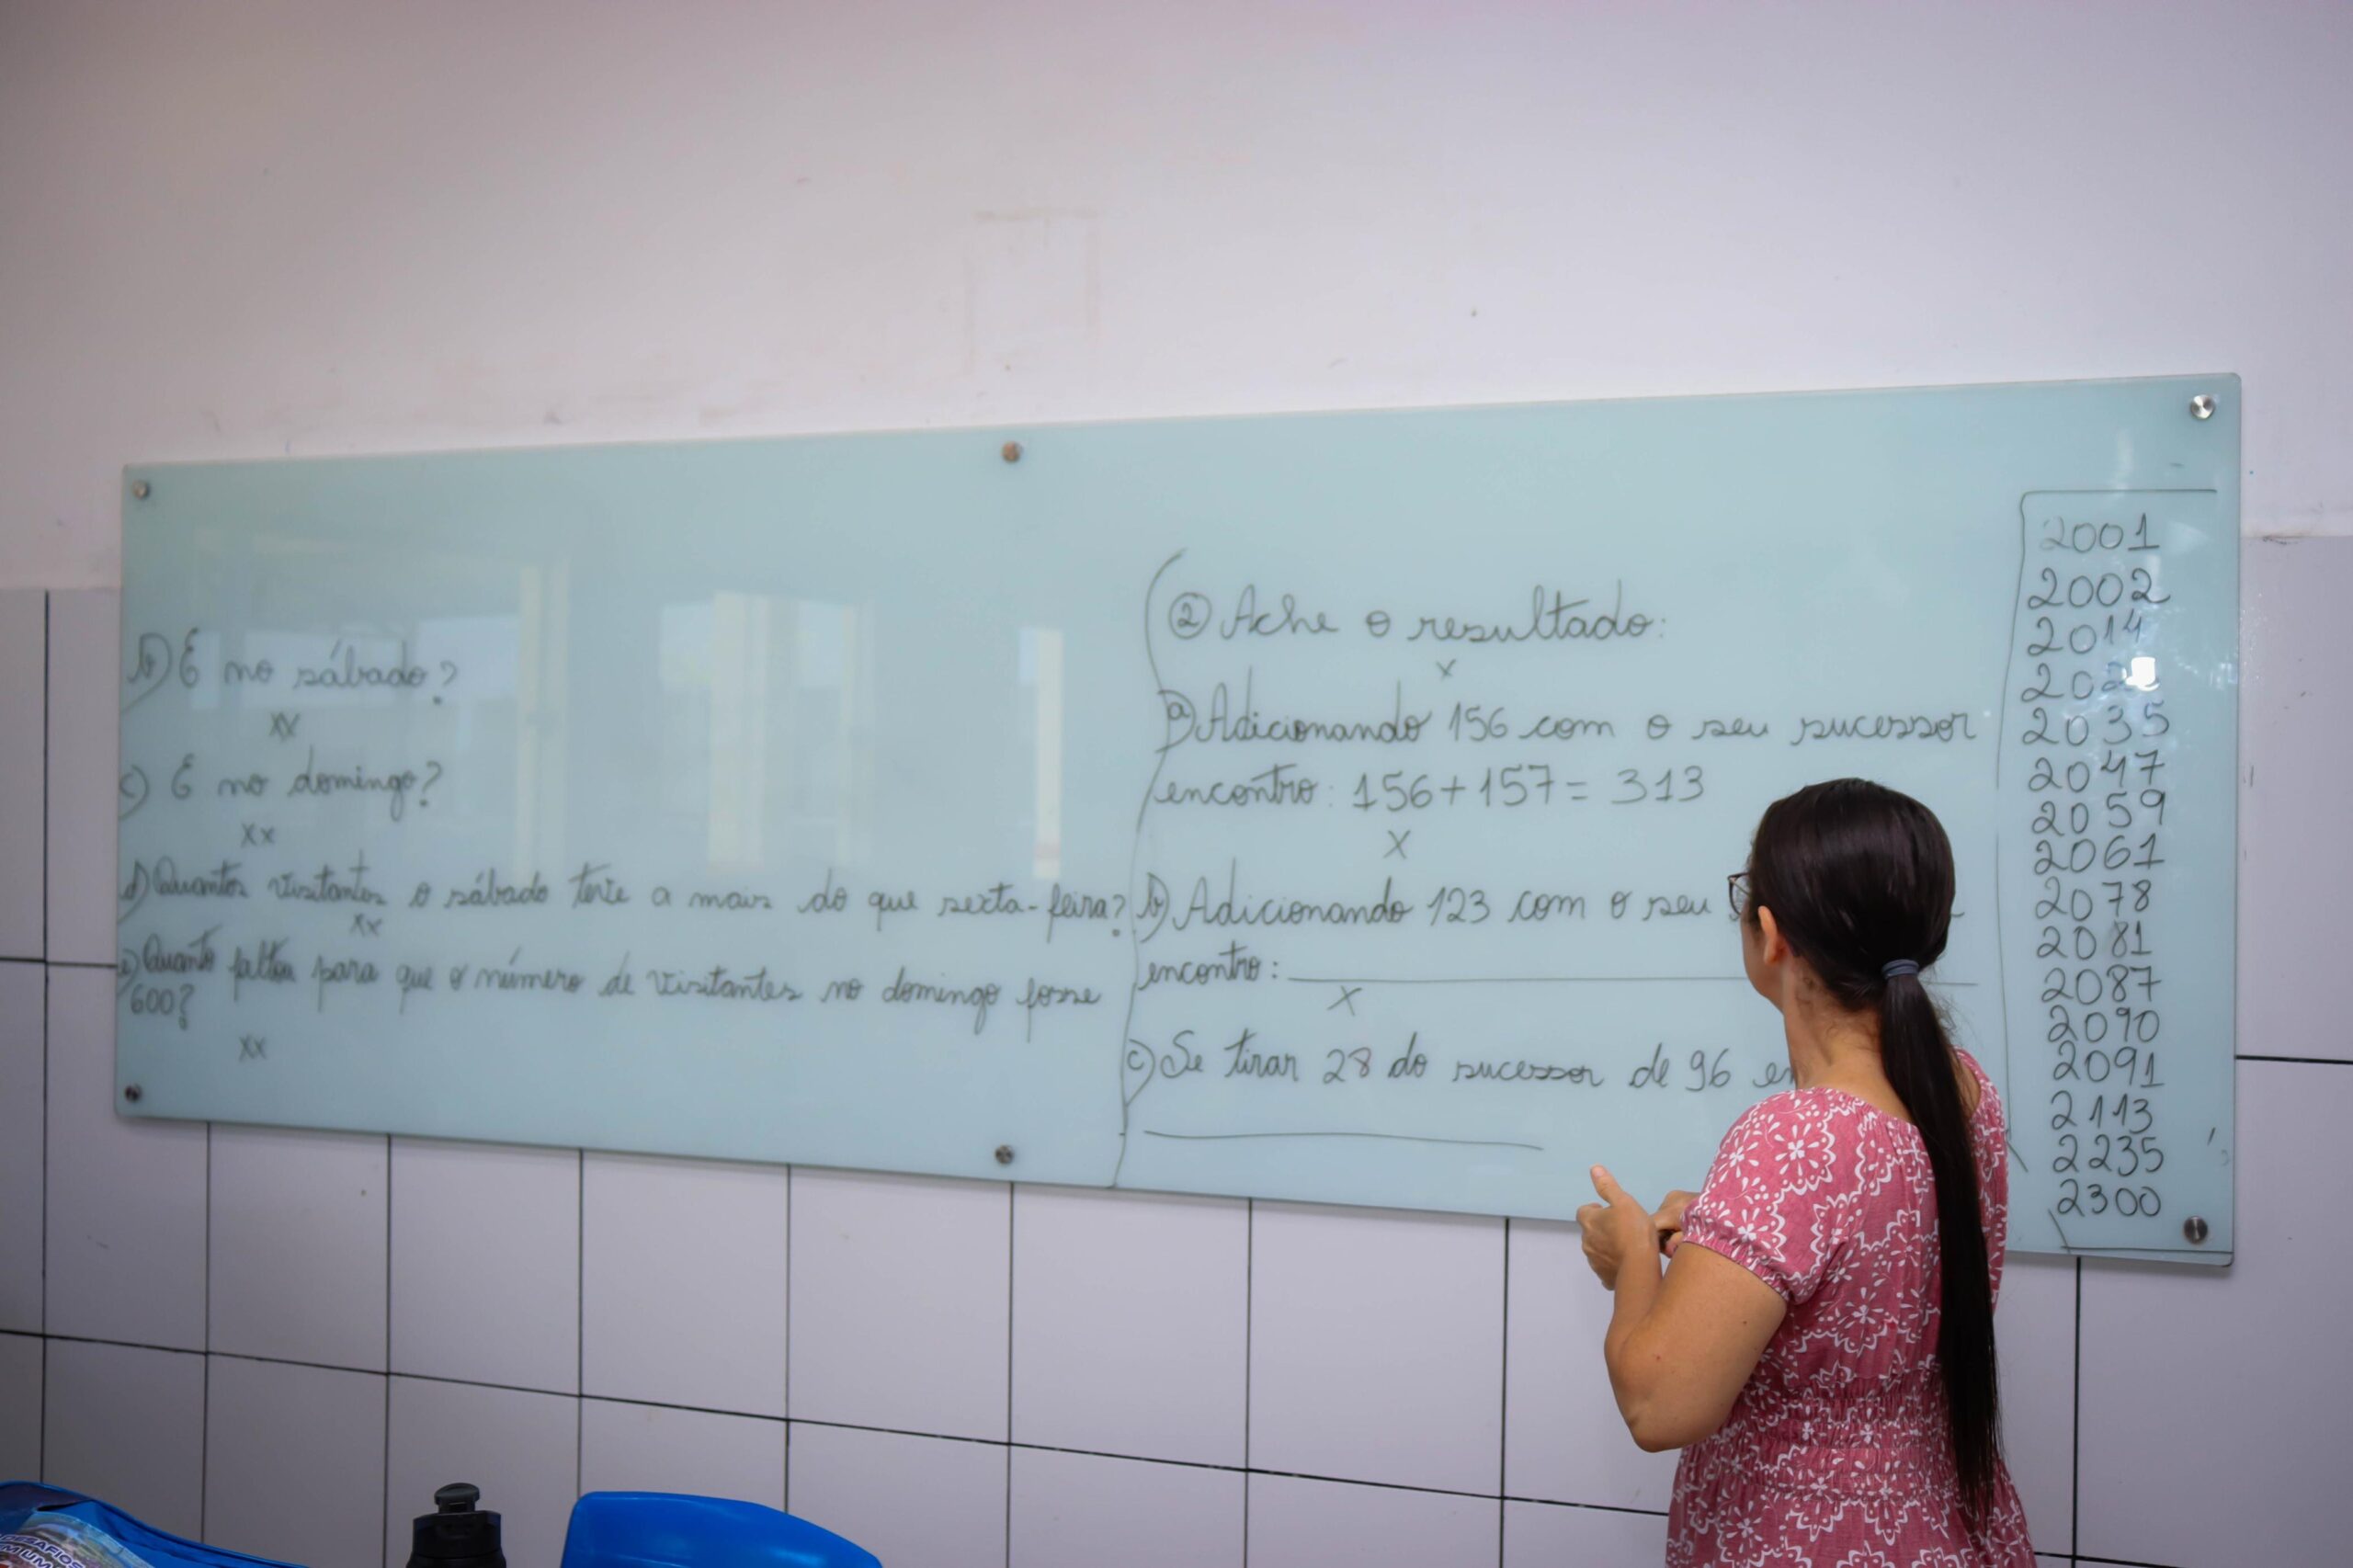 b) E no sábado?
xx
c) E no domingo?
xx
d) Quantos visitantes o sábado teve a mais do que sexta-feira?
xx
e) Quanto faltou para que o número de visitantes no domingo fosse
600?
xx
② Ache o resultado:
x
a) Adicionando 156 com o seu sucessor
encontro: 156+157= 313
x
b) Adicionando 123 com o seu
encontro:
x
c) Se tirar 28 do sucessor de 96
2001
2002
2014
2035
2047
2059
2061
2078
2081
2087
2090
2091
2113
2235
2300
DESAFIOS